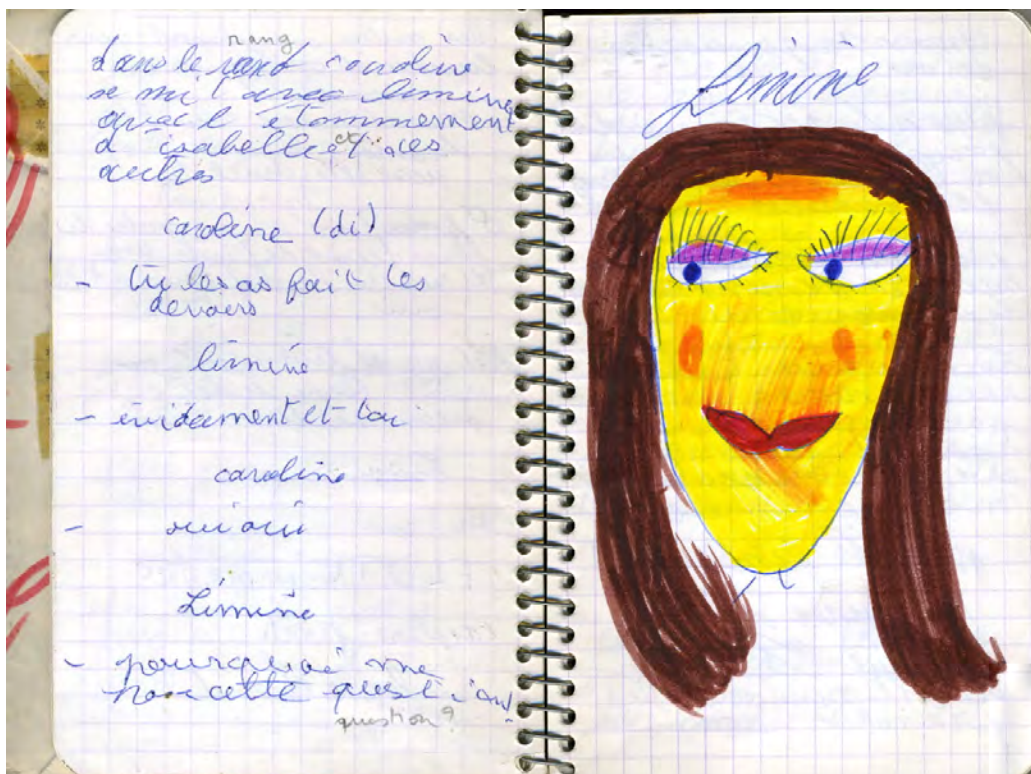 rang
dans le rand caroline
se mit avec limine
avec l'étonnement
d'isabelle et des
autres
caroline (di)
- tu les as fait les
devoirs
limine
- évidament et toi
caroline
- oui oui
Limine
- pourquoi me
cette quest
question?
Limine